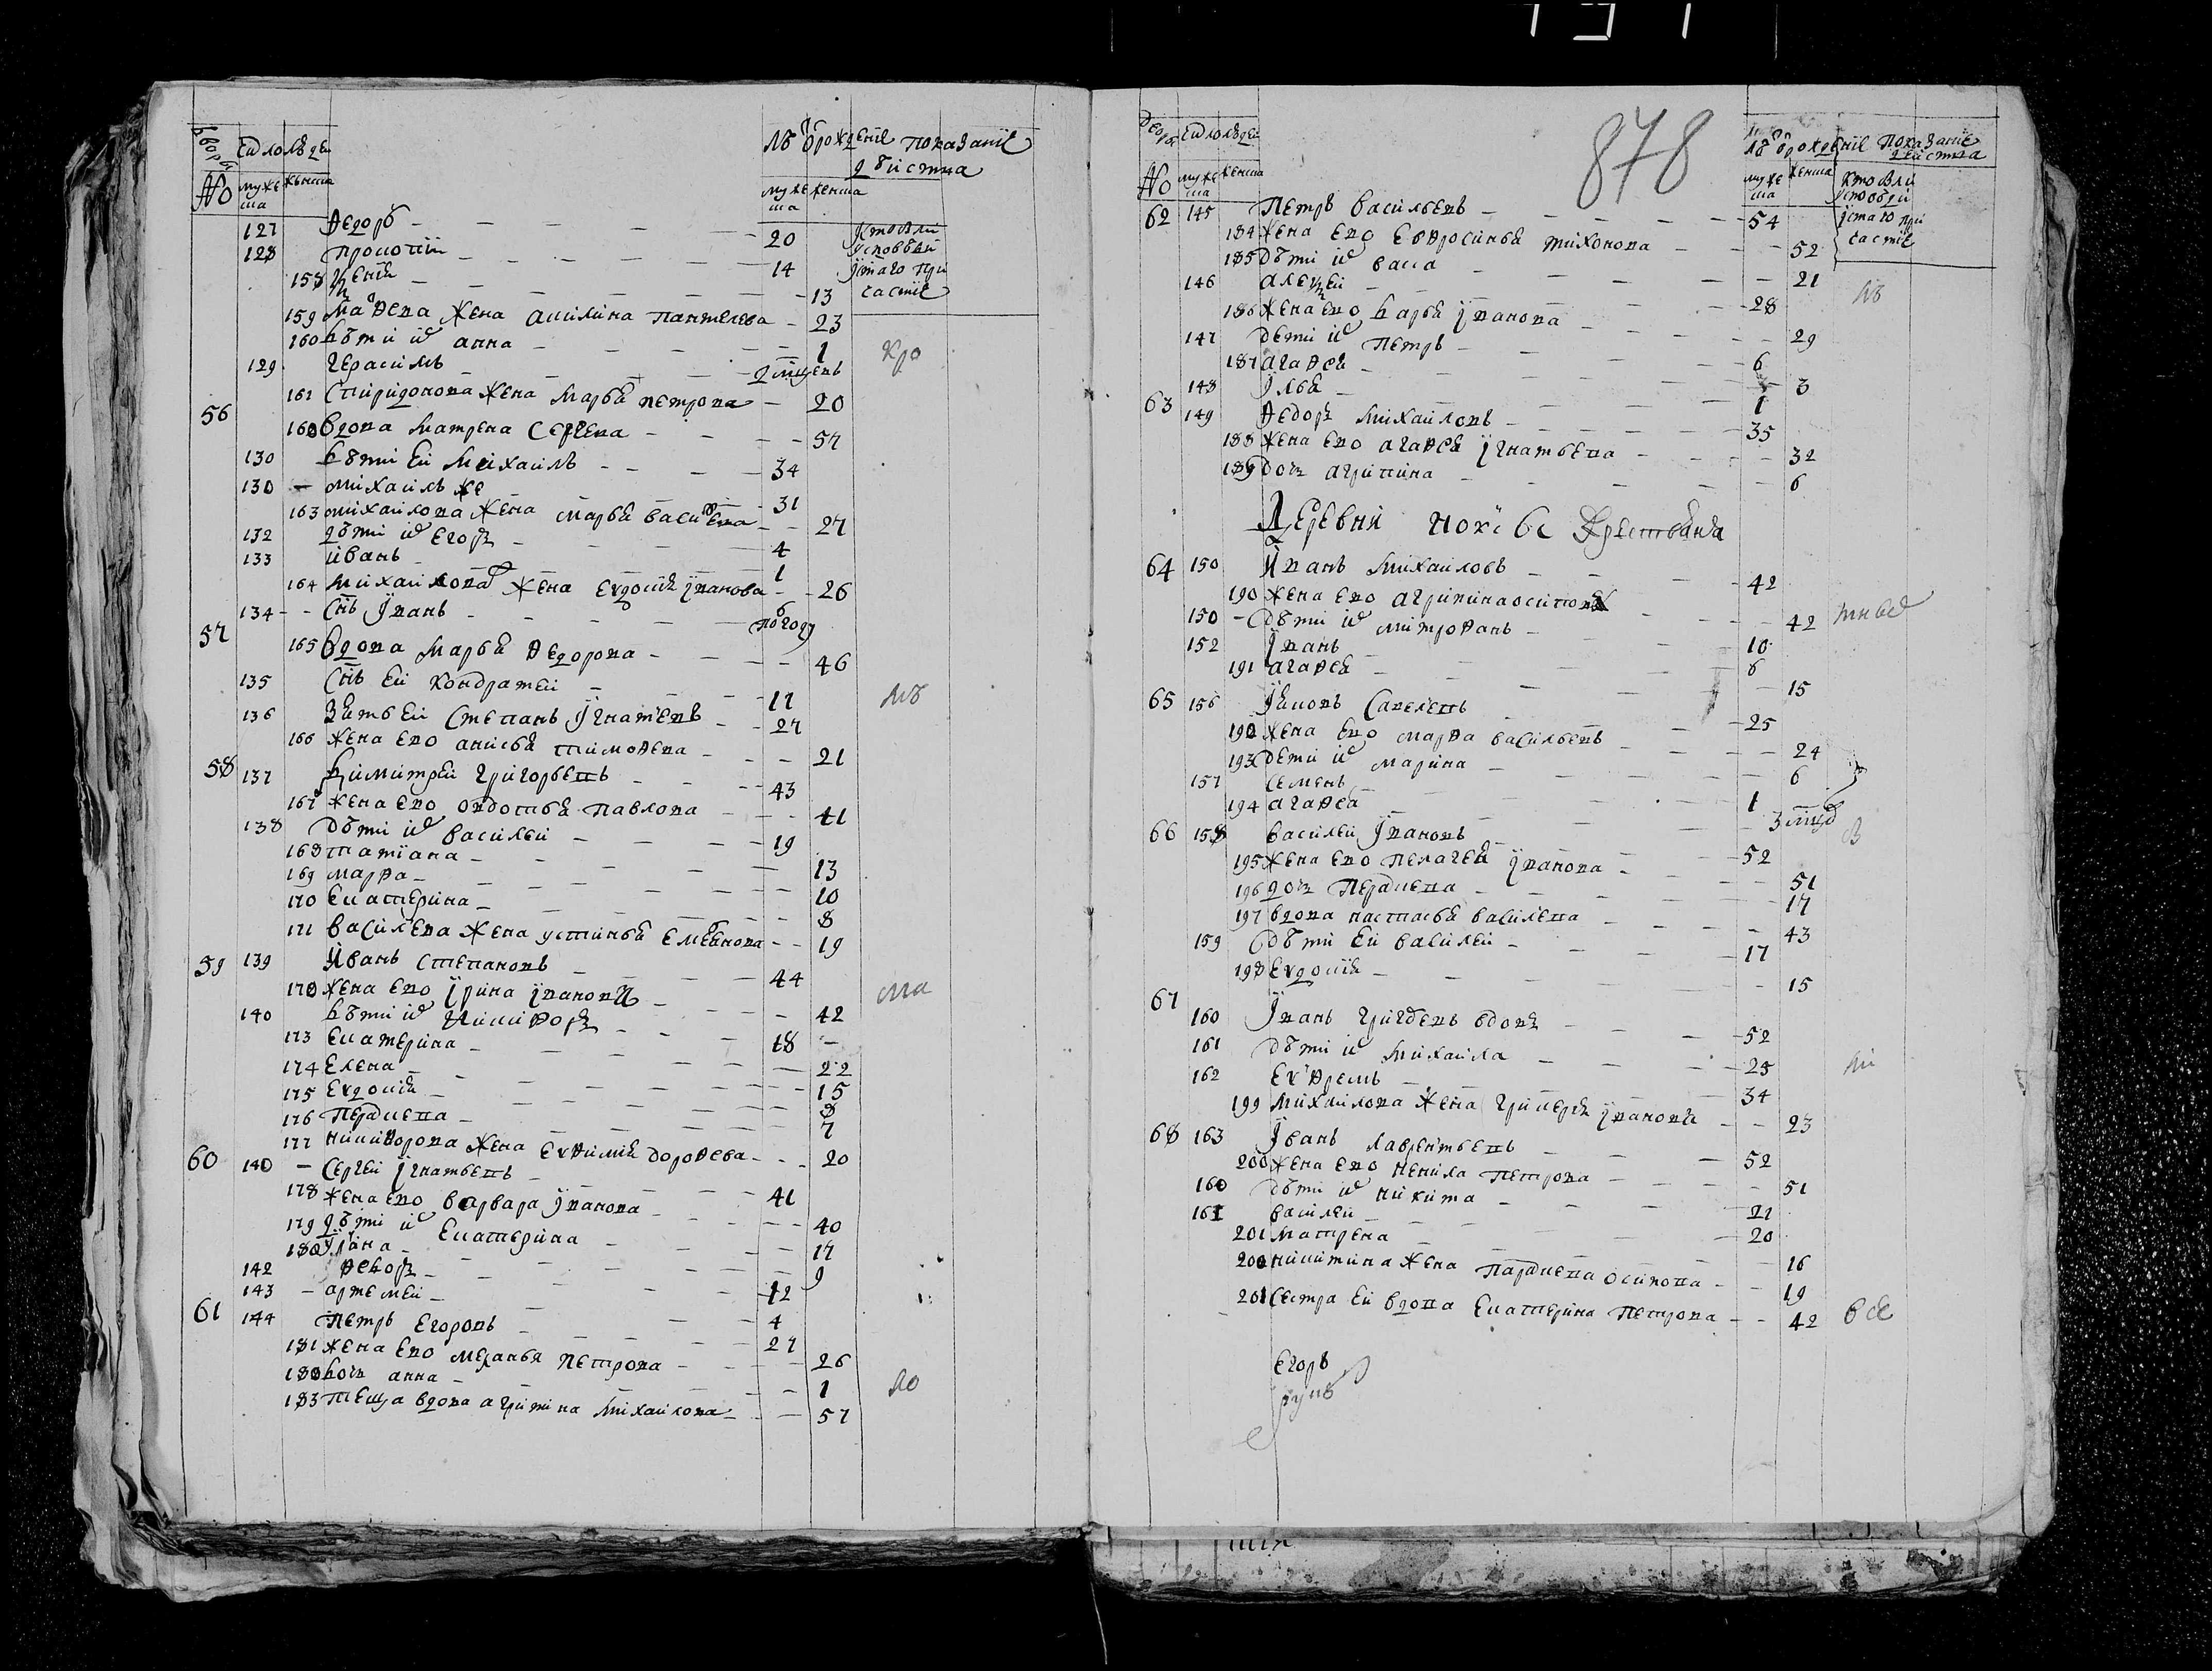 дворы число людеи лѣт ѿ рожденïе показанïе
дѣиства
№ мужеска женска мужеска женска
127 Ѳедоръ 20
128 Прокопïи 14
158 13
кто были
у исповѣди
и стаго при
частïе
159 жена акилина пантелеева 23
160 дѣти их анна 1
129 Герасимъ
161 Спиридонова жена марья петрова 20
56 160 вдова матрена Сергеева 57
130 дѣти еи михаилъ 34
130 михаилъ же 31
163 михаилова жена марья василева 27
132 дѣти их егоръ 4
133 иванъ 1
164 михаилова жена евдокия иванова 26
134 снъ иванъ
57 165 вдова марья ѳедорова 46
135 снъ еи кондратеи 17
136 зять еи степанъ игнатевъ 27
166 жена ево анисья тимоѳева 21
58 137 димитреи григорьевъ 43
167 жена ево овдотья павлова 41
138 дѣти их василеи 19
168 татïана 13
169 марѳа 10
170 екатерина 8
171 василева жена устинья емельянова 19
59 139 иванъ степановъ 44
170 жена ево ирина иванова 42
140 дѣти их никиѳоръ 18
173 екатерина 22
174 елена 15
175 евдокия 8
176 7
177 никиѳорова жена евѳимия дороѳева 20
60 140 сергеи игнатьевъ 41
178 жена ево варвара иванова 40
179 дѣти их екатерина 17
180 уляна 9
142 ѳедоръ 12
143 артемеи 4
61 144 петръ егоровъ 27
181 жена ево меланья петрова 26
180 дочь анна 1
183 теща вдова агрипина михаилова 57
878
дворы число людеи лѣт ѿ рожденïе показанïе
дѣиства
№ мужеска женска мужеска женска
кто были
у исповѣди
и стаго при
частïе
62 145 петръ васильевъ 54
184 жена ево евѳросинья тихонова 52
185 дѣти их васа 21
146 алексеи 28
186 жена ево дарья иванова 29
147 дети их петръ 6
187 агаѳья 3
148 илья 1
63 149 ѳедоръ михаиловъ 35
188 жена ево агаѳья игнатьева 32
189 дочь агрипина 6
Деревни крестьяня
64 150 иванъ михаиловъ 42
190 жена ево агрипина осипова 42
150 дѣти их митроѳанъ 10
152 иванъ 6
191 агаѳья 15
65 156 яковъ савелевъ 25
190 жена ево марѳа васильевъ 24
193 дети их марина 6
157 семенъ 1
194 агаѳья
66 158 василеи ивановъ 52
195 жена ево пелагея иванова 51
196 дочь 17
197 вдова настасья василева 43
159 дѣти еи василеи 17
198 евдокия 15
67 160 иванъ вдовъ 52
161 дѣти их михаила 25
162 евѳремъ 34
199 михаилова жена иванова 23
68 163 иванъ лаврентьевъ 52
200 жена ево ненила петрова 51
160 дѣти их никита 21
161 василеи 20
201 матрена 16
200 никитина жена осипова 19
201 сестра еи вдова екатерина петрова 42
егоръ